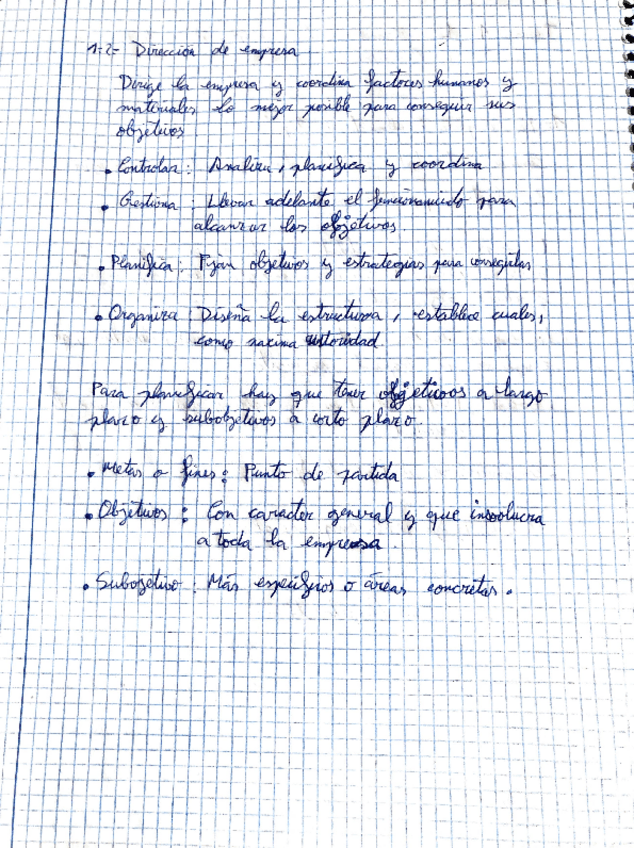 1.2- Dirección de empresa.
Dirige la empresa y coordina factores humanos y
materiales lo mejor posible para conseguir sus
objetivos.
• Controlar: Analiza, planifica y coordina
• Gestiona: Llevar adelante el funcionamiento para
alcanzar los objetivos
• Planifica: Fijan objetivos y estrategias para conseguirlas
• Organiza: Diseña la estructura, establece cuales,
como maxima autoridad.
Para planificar hay que tener objetivos a largo
plazo y subobjetivos a corto plazo.
• Metas o fines: Punto de partida
• Objetivos: Con caracter general y que involucra
a toda la empresa.
• Subojetivo: Más especificos o áreas concretas.